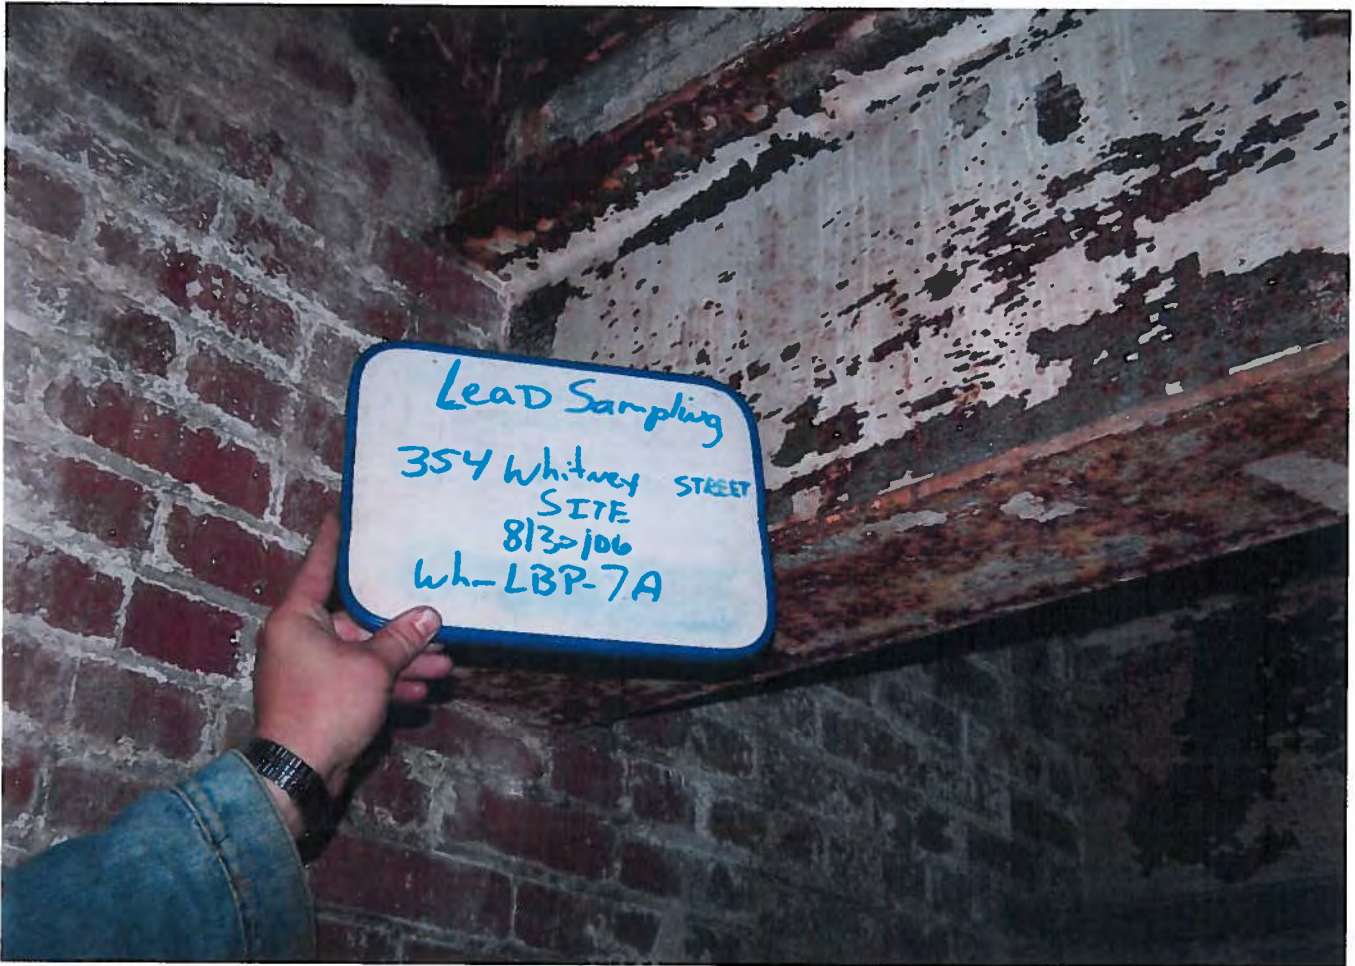 LeaD Sampling
354 Whitney STREET
SITE
Wh-LBP-7A